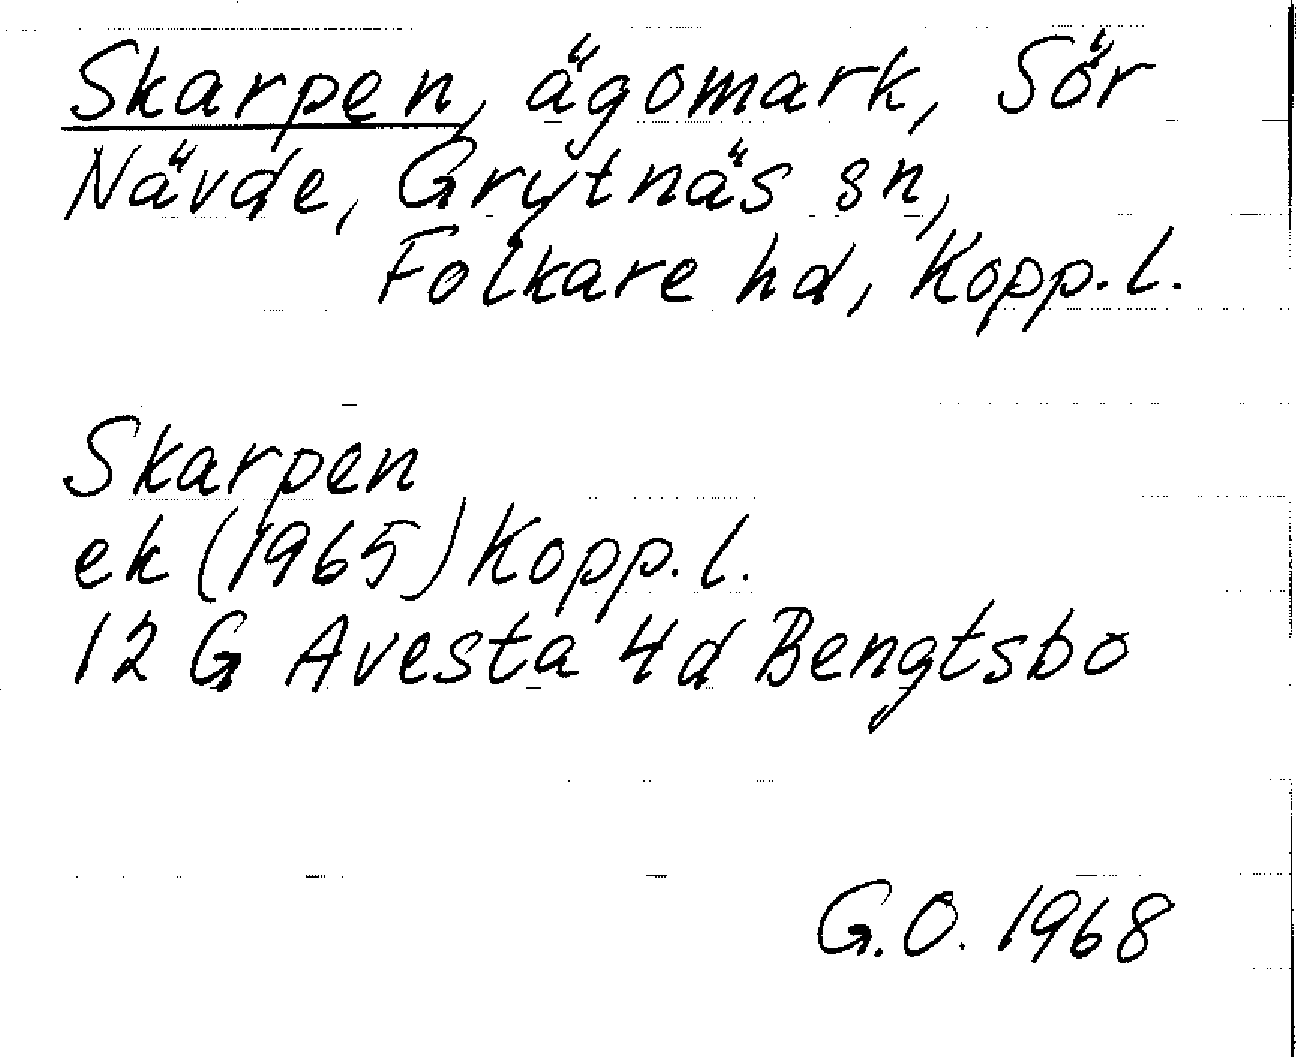 Skarpen, ägomark, Sör
Nävde, Grytnäs sn,
Folkare hd, Kopp. l.
Skarpen
ek (1965) Kopp. l.
12 G Avesta 4d Bengtsbo
G.O. 1968